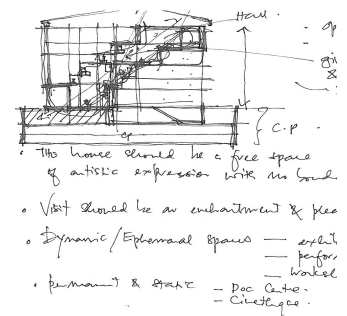 Hall.
C.P.
CP
• The house should be a free space
of artistic expression with no
• Visit should be an enchantment &
• Dynamic/Ephemeral spaces —
—
—
• permanent & static — Doc Centre.
— Cinetheque.